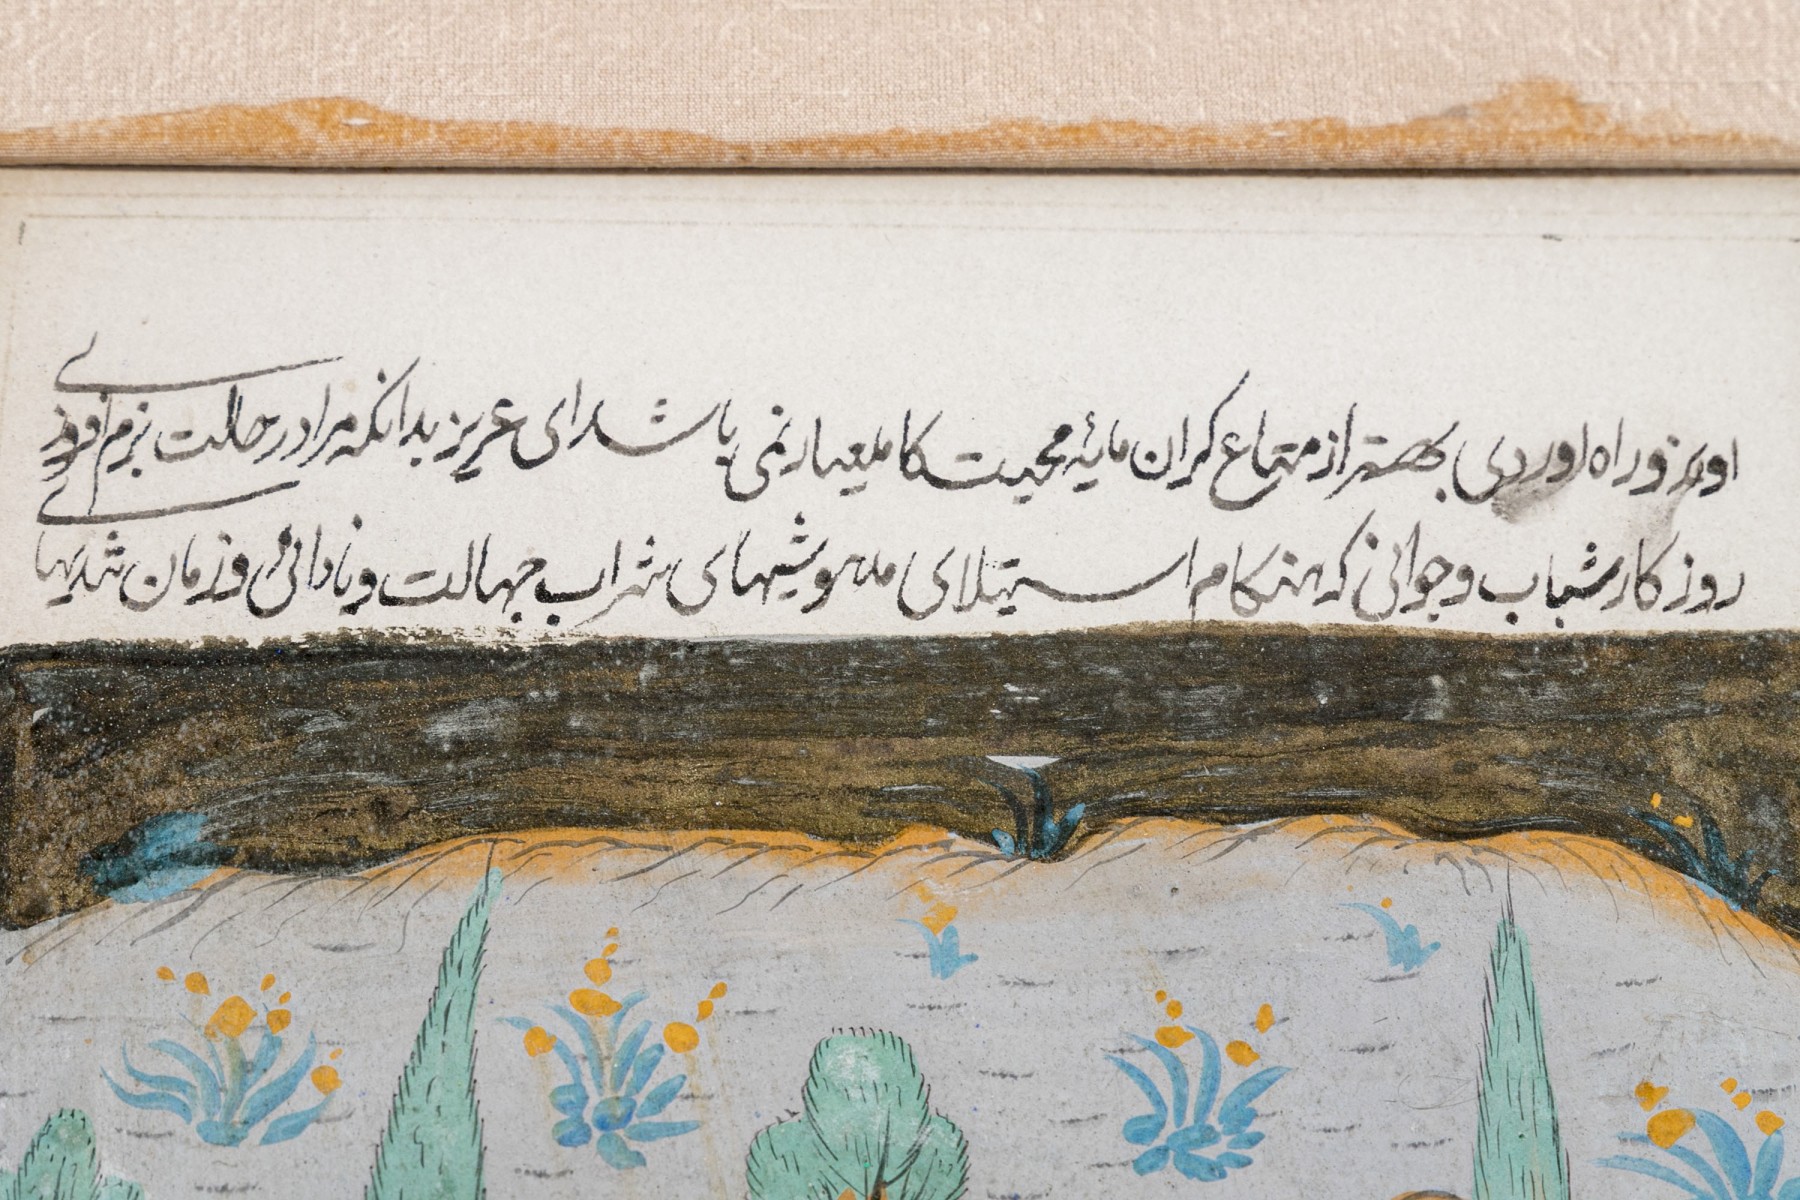 او بیرزو راه اوردی بهتر از متاع کران مایهٔ محبت کاملعیار نمی باشد ای عزیز بدانکه مرا در حالت بزم افروزی
روز کار شباب و جوانی که هنکام استیلای مدهوشیهای شراب جهالت و نادانی و زمان شدیهای